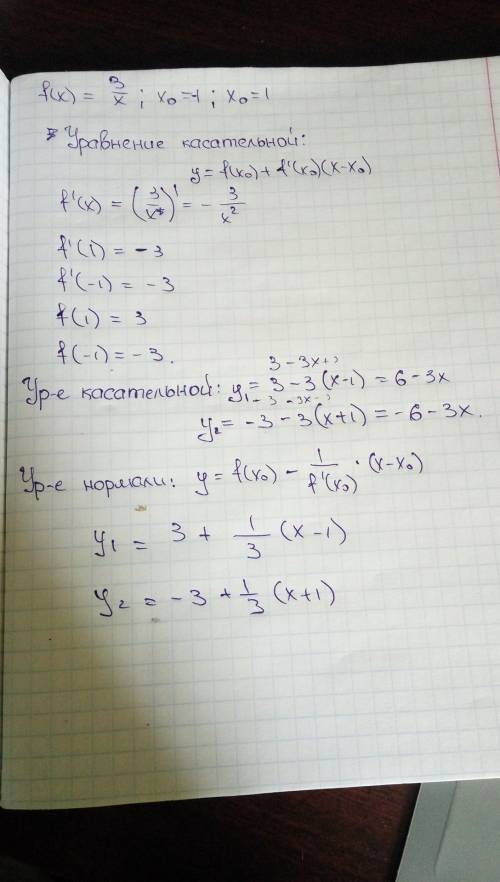 f(x) = 3/x ; x₀=-1 ; x₀=1
Уравнение касательной:
y = f(x₀) + f'(x₀)(x-x₀)
f'(x) = (3/x)' = - 3/x²
f'(1) = -3
f'(-1) = -3
f(1) = 3
f(-1) = -3.
3 - 3x + 3
Ур-е касательной: y₁ = 3 - 3(x-1) = 6 - 3x
-3 - 3x - 3
y₂ = -3 - 3(x+1) = -6 - 3x.
Ур-е нормали: y = f(x₀) - 1/f'(x₀) · (x-x₀)
y₁ = 3 + 1/3 (x-1)
y₂ = -3 + 1/3 (x+1)